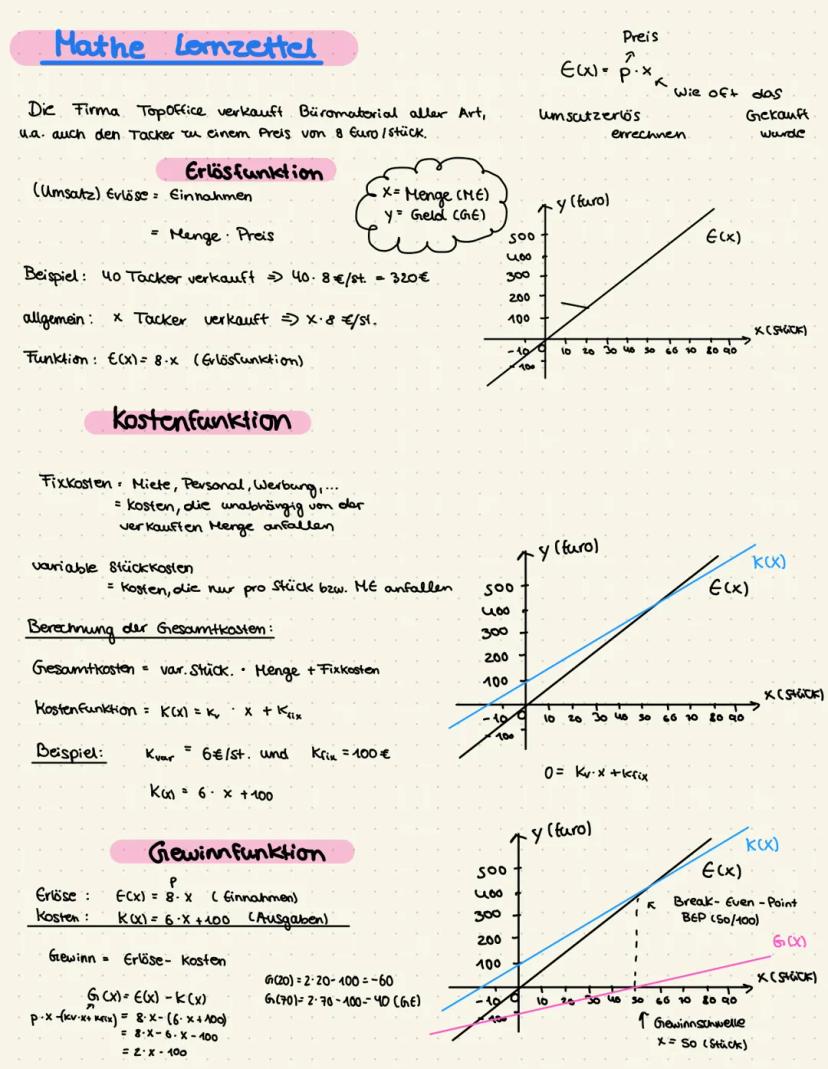 Mathe Lernzettel
Preis
E(x) = p · x
Wie oft das
Umsatzerlös Gekauft
errechnen wurde
Die Firma TopOffice verkauft Büromaterial aller Art,
u.a. auch den Tacker zu einem Preis von 8 Euro/Stück.
Erlösfunktion
(Umsatz) Erlöse = Einnahmen
= Menge · Preis
x = Menge (ME)
y = Geld (GE)
Beispiel: 40 Tacker verkauft => 40 · 8 €/st. = 320€
allgemein: x Tacker verkauft => x · 8 €/st.
Funktion: E(x) = 8 · x (Erlösfunktion)
y (Euro)
E(x)
500
400
300
200
100
x (Stück)
-10 0 10 20 30 40 50 60 70 80 90
-100
Kostenfunktion
Fixkosten = Miete, Personal, Werbung,...
= Kosten, die unabhängig von der
verkauften Menge anfallen
variable Stückkosten
= Kosten, die nur pro Stück bzw. ME anfallen
Berechnung der Gesamtkosten:
Gesamtkosten = var. Stück. · Menge + Fixkosten
Kostenfunktion = K(x) = Kv · x + Kfix
Beispiel: Kvar = 6€/st. und Kfix = 100€
K(x) = 6 · x + 100
y (Euro)
K(x)
E(x)
500
400
300
200
100
x (Stück)
-10 0 10 20 30 40 50 60 70 80 90
-100
0 = Kv · x + Kfix
Gewinnfunktion
p
Erlöse: E(x) = 8 · x (Einnahmen)
Kosten: K(x) = 6 · x + 100 (Ausgaben)
Gewinn = Erlöse - Kosten
G(x) = E(x) - K(x)
p · x - (Kv · x + Kfix) = 8 · x - (6 · x + 100)
= 8 · x - 6 · x - 100
= 2 · x - 100
G(20) = 2 · 20 - 100 = -60
G(70) = 2 · 70 - 100 = 40 (GE)
y (Euro)
K(x)
E(x)
500
400
300
200
100
Break-Even-Point
BEP (50/100)
G(x)
x (Stück)
-10 0 10 20 30 40 50 60 70 80 90
-100
Gewinnschwelle
x = 50 (Stück)